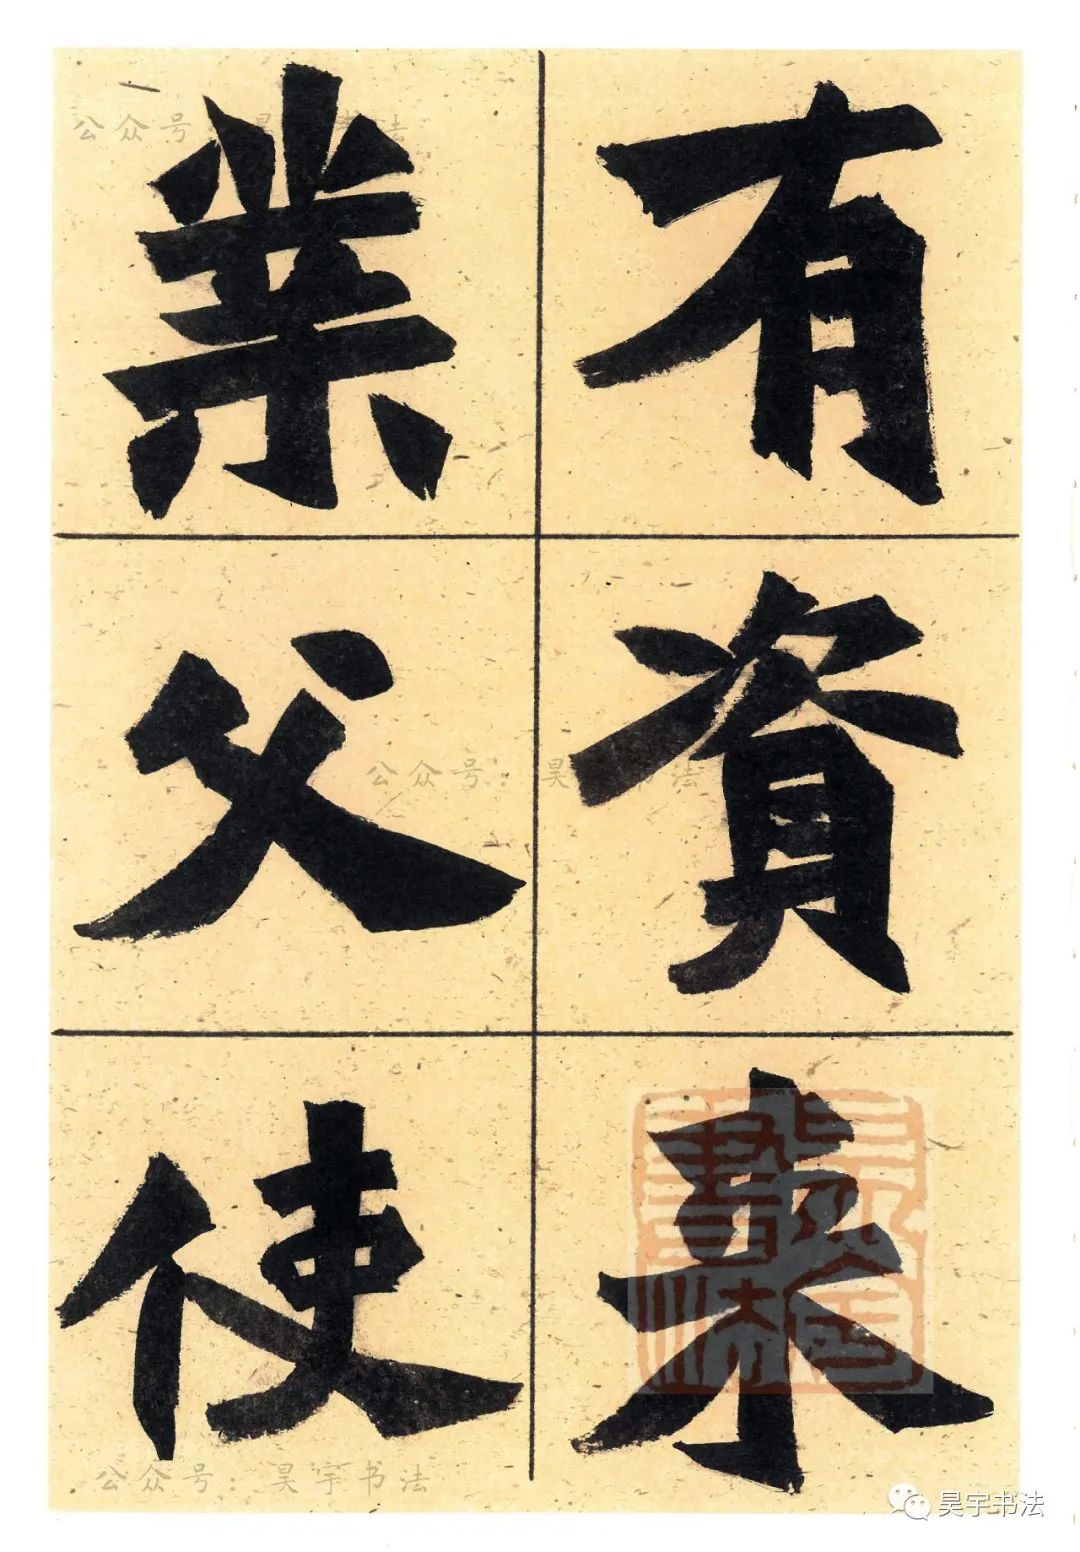 有資来
業父使
公众号：昊宇书法
公众号：昊宇书法
公众号：昊宇书法
昊宇书法